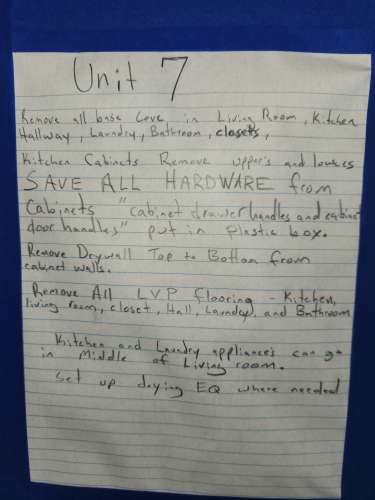 Unit 7
Remove all base Cove in Living Room, Kitchen
Hallway, Laundry, Bathroom, closets,
Kitchen Cabinets Remove upper's and lowers
SAVE ALL HARDWARE from
Cabinets "cabinet drawer handles and cabinet
door handles" put in plastic box.
Remove Drywall Top to Bottom from
cabinet walls.
Remove All LVP flooring - Kitchen,
living room, closet, Hall, Laundry, and Bathroom
Kitchen and Laundry appliances can go
in Middle of Living room.
Set up drying EQ where needed